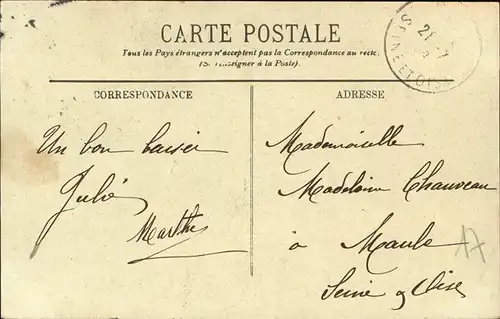 CARTE POSTALE
Tous les Pays étrangers n'acceptent pas la Correspondance au recto.
(Se renseigner à la Poste).
CORRESPONDANCE
Un bon baiser
Julie
Marthe
ADRESSE
Mademoiselle
Madeleine Chauveau
à Maule
Seine & Oise
SEINE ET OISE
21
17